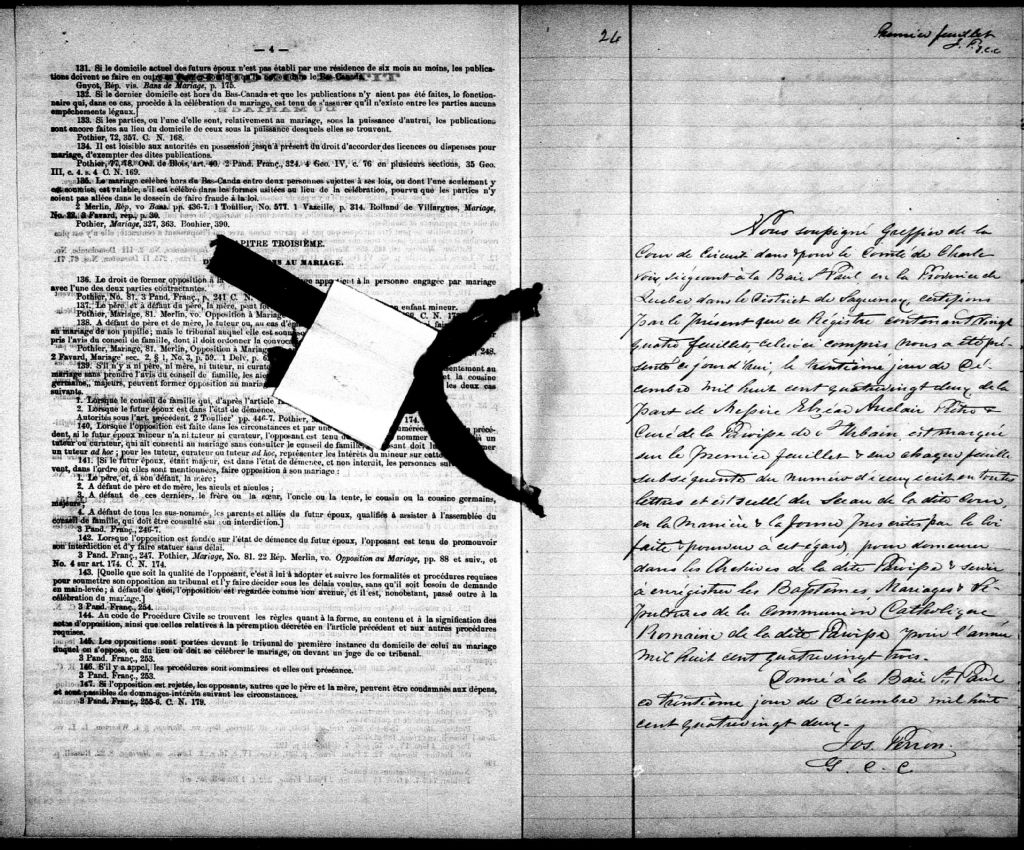 — 4 —
131. Si le domicile actuel des futurs époux n'est pas établi par une résidence de six mois au moins, les publica-
tions doivent se faire en outre le Bas-Canada.
Guyot, Rép. vis. Bans de Mariage, p. 175.
132. Si le dernier domicile est hors du Bas-Canada et que les publications n'y aient pas été faites, le fonction-
naire qui, dans ce cas, procède à la célébration du mariage, est tenu de s'assurer qu'il n'existe entre les parties aucuns
empêchements légaux.]
133. Si les parties, ou l'une d'elles sont, relativement au mariage, sous la puissance d'autrui, les publications
sont encore faites au lieu du domicile de ceux sous la puissance desquels elles se trouvent.
Pothier, 72, 357. C. N. 168.
134. Il est loisible aux autorités en possession jusqu'à présent du droit d'accorder des licences ou dispenses pour
mariage, d'exempter des dites publications.
Pothier, 77, 78. Ord. de Blois, art. 40. 2 Pand. Franç., 324. 4 Geo. IV, c. 76 en plusieurs sections, 35 Geo.
III, c. 4. s. 4 C. N. 169.
135. Le mariage célébré hors du Bas-Canada entre deux personnes sujettes à ses lois, ou dont l'une seulement y
est soumise, est valable, s'il est célébré dans les formes usitées au lieu de la célébration, pourvu que les parties n'y
soient pas allées dans le dessein de faire fraude à la loi.
2 Merlin, Rép, vo Bans. pp. 436-7. 1 Toullier, No. 577. 1 Vazeille, p. 314. Rolland de Villargues, Mariage,
No. 3 Favard, rép., p. 39.
Pothier, Mariage, 327, 363. Bouhier, 390.
APITRE TROISIÈME.
AU MARIAGE.
136. Le droit de former opposition à la appartient à la personne engagée par mariage
avec l'une des deux parties contractantes.
Pothier, No. 81. 3 Pand. Franç., p. 241 C. N.
137. Le père, et à défaut du père, la mère, peut enfant mineur.
Pothier, Mariage, 81. Merlin, vo. Opposition à Mariage C. N.
138. A défaut de père et de mère, le tuteur ou, au cas
au mariage de son pupille; mais le tribunal auquel elle est
pris l'avis du conseil de famille, dont il doit ordonner la
Pothier, Mariage, 81. Merlin, Opposition à Mariage 248.
2 Favard, Mariage sec. 2, § 1, No. 3, p. 59. 1 Delv. p.
139. S'il n'y a ni père, ni mère, ni tuteur, ni
au mariage sans prendre l'avis du conseil de famille, les la cousine
germains, majeurs, peuvent former opposition au les deux cas
suivants.
1. Lorsque le conseil de famille qui, d'après l'article
2. Lorsque le futur époux est dans l'état de démence.
Autorités sous l'art. précédent. 2 Toullier pp. 446-7. Pothier, 174.
140. Lorsque l'opposition est faite dans les circonstances et par une
dent, si le futur époux mineur n'a ni tuteur ni curateur, l'opposant est tenu
tuteur ou curateur, qui ait consenti au mariage sans consulter le conseil de famille,
un tuteur ad hoc; pour les tuteur, curateur ou tuteur ad hoc, représenter les intérêts du mineur sur cette
141. [Si le futur époux, étant majeur, est dans l'état de démence, et non interdit, les personnes
vent, dans l'ordre où elles sont mentionnées, faire opposition à son mariage:
1. Le père, et, à son défaut, la mère;
2. A défaut de père et de mère, les aïeuls et aïeules;
3. A défaut de ces derniers, le frère ou la sœur, l'oncle ou la tante, le cousin ou la cousine germains,
majeurs;
4. A défaut de tous les sus-nommés, les parents et alliés du futur époux, qualifiés à assister à l'assemblée du
conseil de famille, qui doit être consulté sur son interdiction.]
3 Pand. Franç., 246-7.
142. Lorsque l'opposition est fondée sur l'état de démence du futur époux, l'opposant est tenu de promouvoir
son interdiction et d'y faire statuer sans délai.
3 Pand. Franç., 247. Pothier, Mariage, No. 81. 22 Rép. Merlin, vo. Opposition au Mariage, pp. 88 et suiv., et
No. 4 sur art. 174. C. N. 174.
143. [Quelle que soit la qualité de l'opposant, c'est à lui à adopter et suivre les formalités et procédures requises
pour soumettre son opposition au tribunal et l'y faire décider sous les délais voulus, sans qu'il soit besoin de demande
en main-levée; à défaut de quoi, l'opposition est regardée comme non avenue, et il est, nonobstant, passé outre à la
célébration du mariage.]
3 Pand. Franç., 254.
144. Au code de Procédure Civile se trouvent les règles quant à la forme, au contenu et à la signification des
actes d'opposition, ainsi que celles relatives à la péremption décrétée en l'article précédent et aux autres procédures
requises.
145. Les oppositions sont portées devant le tribunal de première instance du domicile de celui au mariage
duquel on s'oppose, ou du lieu où doit se célébrer le mariage, ou devant un juge de ce tribunal.
3 Pand. Franç., 253.
146. S'il y a appel, les procédures sont sommaires et elles ont préséance.
3 Pand. Franç., 253.
147. Si l'opposition est rejetée, les opposants, autres que le père et la mère, peuvent être condamnés aux dépens,
et sont passibles de dommages-intérêts suivant les circonstances.
3 Pand. Franç., 255-6. C. N. 179.
24
Premier feuillet
J. P. G.C.C
Nous soussigné Greffier de la
Cour de Circuit dans & pour le Comté de Charle
voix, siégeant à la Baie St Paul en la Province de
Québec dans le District de Saguenay, certifions
par le présent que ce Régistre contenant vingt
quatre feuillets celui-ci compris nous a été pré-
senté ce jourd'hui, le trentième jour de Dé-
cembre mil huit cent quatrevingt deux de la
part de Messire Elzéar Auclair Ptre &
Curé de la Paroisse de St Urbain est marqué
sur le premier feuillet & sur chaque feuille
subséquente du numéro d'iceux écrit en toutes
lettres et est scellé du Sceau de la dite Cour,
en la manière & la forme prescrites par la loi
faite & pourvue à cet égard, pour demeurer
dans les Archives de la dite Paroisse & servir
à enrégistrer les Baptêmes Mariages & Sé-
pultures de la Communion Catholique
Romaine de la dite Paroisse pour l'année
mil huit cent quatrevingt trois.
Donné à la Baie St Paul
ce trentième jour de Décembre mil huit
cent quatrevingt deux.
Jos. Perron.
G. C. C.